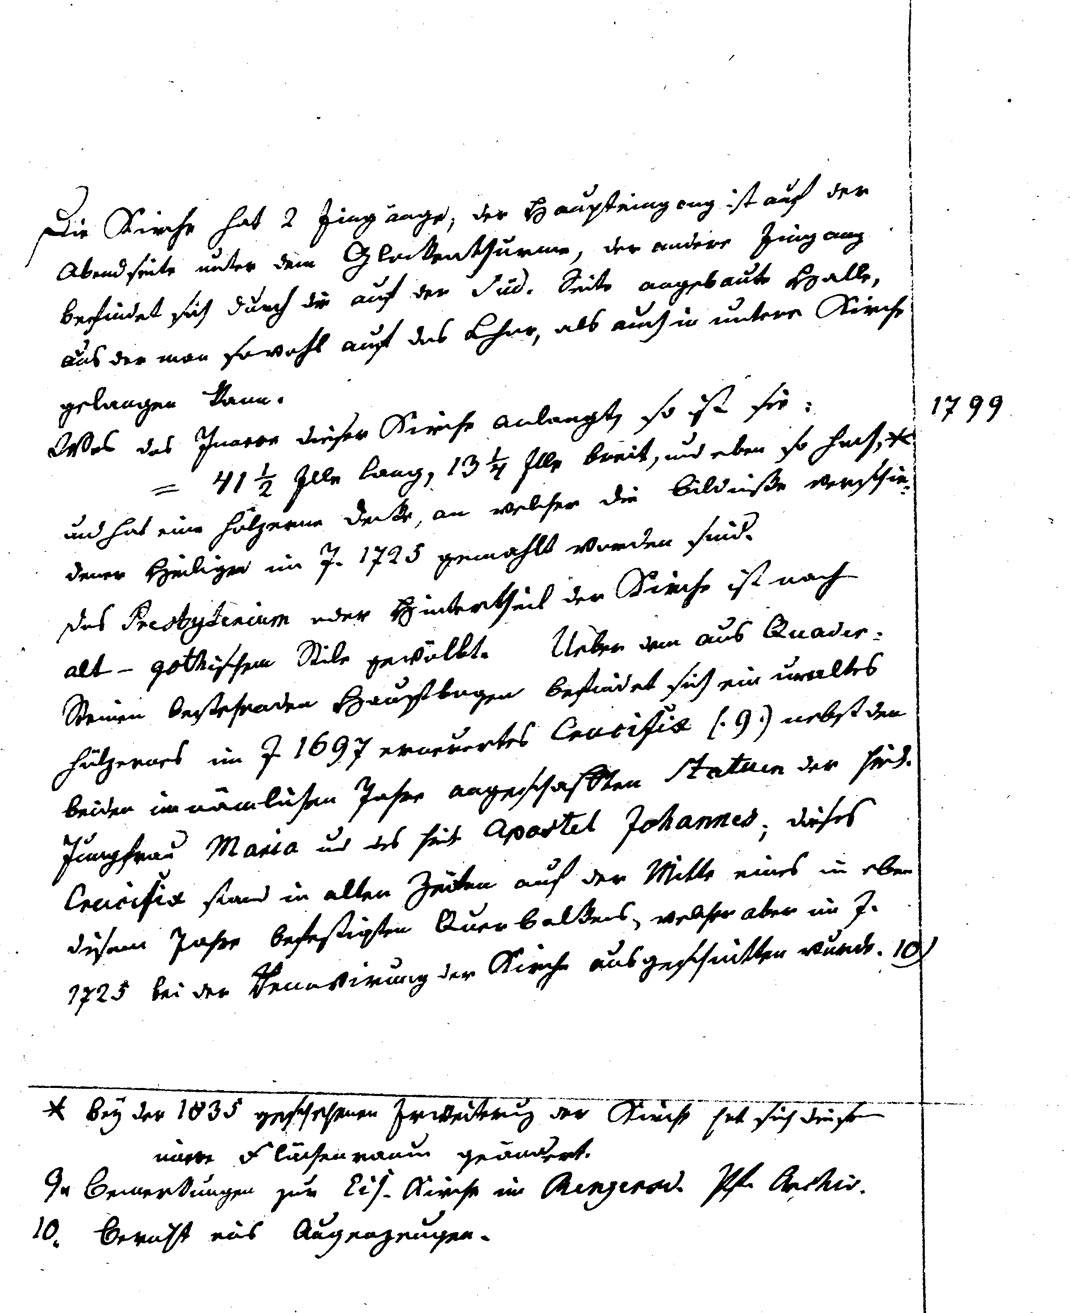 Die Kirche hat 2 Eingänge, der Haupteingang ist auf der
Abendseite unter dem Glockenthurme, der andere Eingang
befindet sich durch die auf der Süd. Seite angebaute Halle,
aus der man sowohl auf das Chor, als auch in untere Kirche
gelangen kann.
Was das Innere dieser Kirche anlangt, so ist sie:
1799
= 41 1/2 Elle lang, 13 1/4 Elle breit, und eben so hoch, *
und hat eine hölzerne Decke, an welcher die Bildniße verschie=
dener Heiligen im J. 1725 gemahlt worden sind.
Das Presbyterium oder Hintertheil der Kirche ist nach
alt-gothischem Stile gewölbt. Ueber dem aus Quader=
Steinen bestehenden Hauptbogen befindet sich ein uraltes
hölzernes im J 1697 erneuertes Crucifix (.9.) nebst den
beiden im nämlichen Jahre angeschafften Statuen der
Jungfrau Maria und des Apostel Johannes; dieses
Crucifix stand in alten Zeiten auf der Mitte eines in eben
diesem Jahre befestigten Querbalkens, welcher aber im J.
1725 bei der Renovirung der Kirche ausgeschnitten wurde. 10)
* Bey der 1835 geschehenen Erweiterung der Kirche hat sich dieser
innere Flächenraum geändert.
9. Bemerkungen zur Kirche im Pf. Archiv.
10. Bericht eines Augenzeugen.